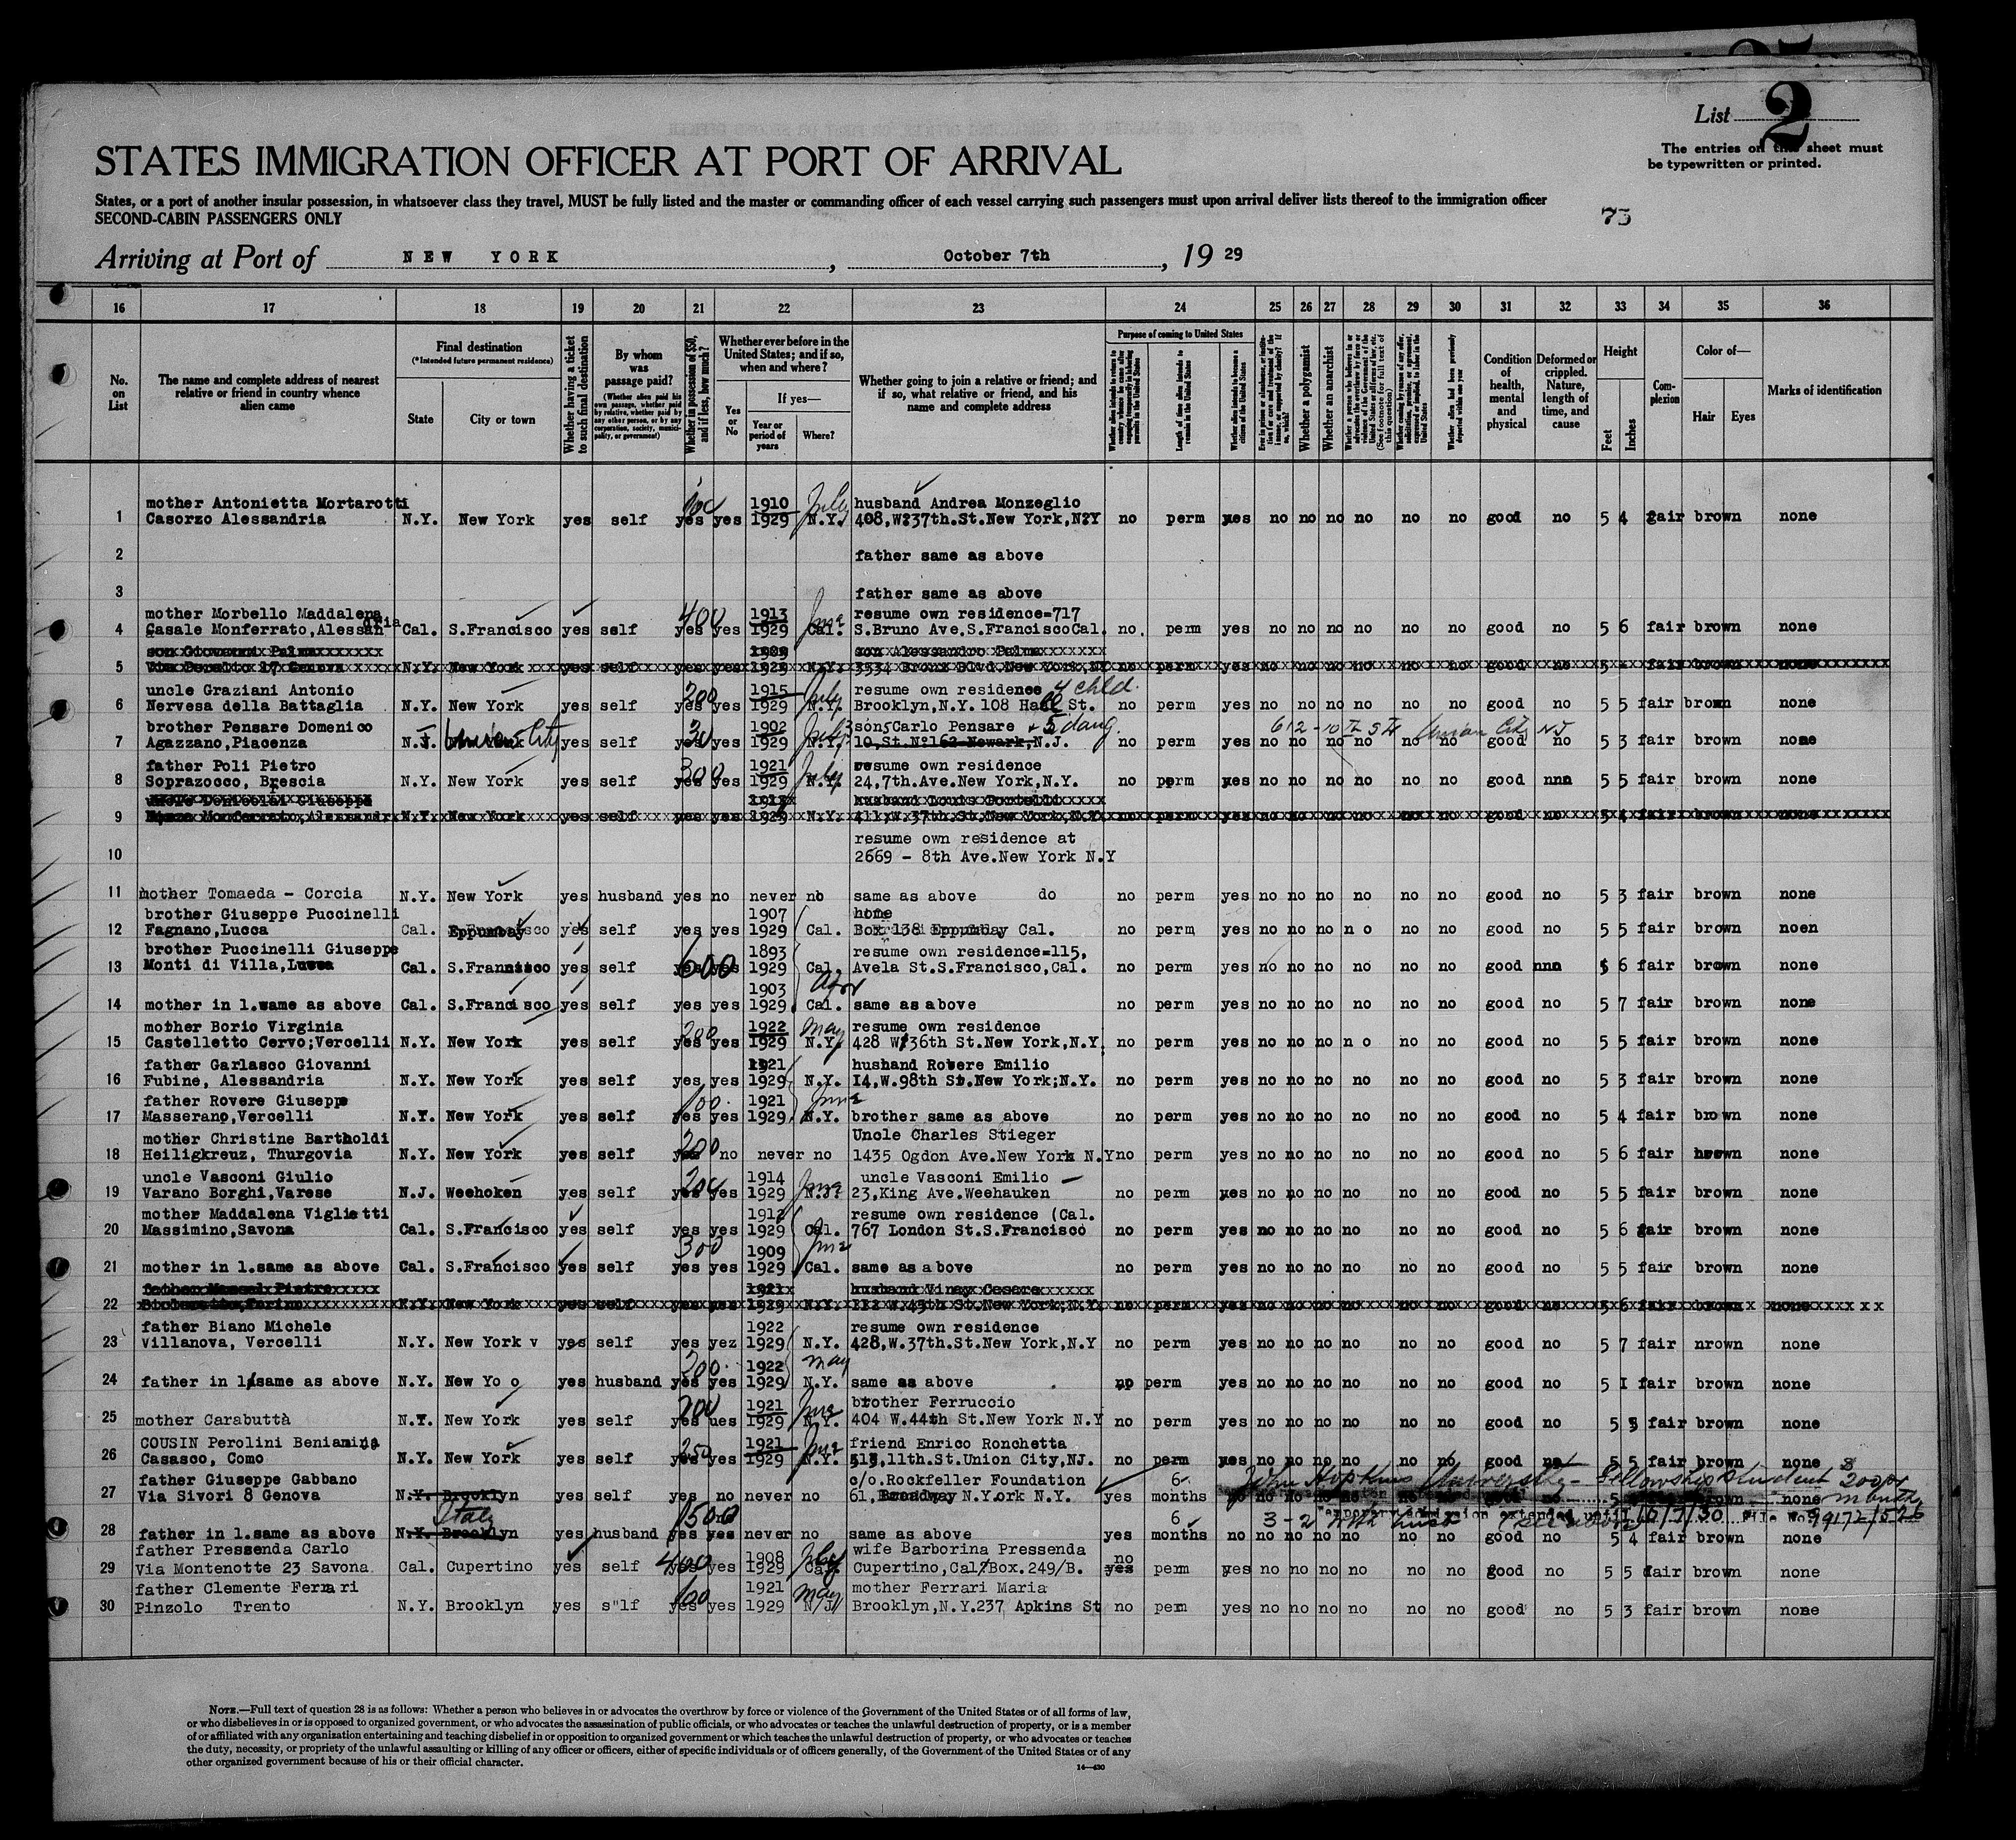 List 2
The entries on this sheet must
be typewritten or printed.
STATES IMMIGRATION OFFICER AT PORT OF ARRIVAL
States, or a port of another insular possession, in whatsoever class they travel, MUST be fully listed and the master or commanding officer of each vessel carrying such passengers must upon arrival deliver lists thereof to the immigration officer
SECOND-CABIN PASSENGERS ONLY
73
Arriving at Port of NEW YORK, October 7th, 19 29
16 17 18 19 20 21 22 23 24 25 26 27 28 29 30 31 32 33 34 35 36
No. on List
The name and complete address of nearest relative or friend in country whence alien came
Final destination
(*Intended future permanent residence)
State
City or town
Whether having a ticket to such final destination
By whom was passage paid?
(Whether alien paid his own passage, whether paid by relative, whether paid by any other person, or by any corporation, society, municipality, or government)
Whether in possession of $50, and if less, how much?
Whether ever before in the United States; and if so, when and where?
Yes or No
If yes—
Year or period of years
Where?
Whether going to join a relative or friend; and if so, what relative or friend, and his name and complete address
Purpose of coming to United States
Length of time alien intends to remain in the United States
Whether alien intends to become a citizen of the United States
Whether a polygamist
Whether an anarchist
(See footnote for full text of this question)
Whether alien had been previously deported within one year
Condition of health, mental and physical
Deformed or crippled. Nature, length of time, and cause
Height
Feet
Inches
Complexion
Color of—
Hair
Eyes
Marks of identification
mother Antonietta Mortarotti 1910 July husband Andrea Monzeglio
1 Casorzo Alessandria N.Y. New York yes self yes yes 1929 N.Y. 408, W?37th.St.New York,N?Y no perm yes no no no no no no good no 5 4 fair brown none
2 father same as above
3 father same as above
mother Morbello Maddalena 400 1913 June resume own residence=717
4 Casale Monferrato,Alessandria Cal. S.Francisco yes self yes yes 1929 Cal. S.Bruno Ave.S.FranciscoCal. no. perm yes no no no no no no good no 5 6 fair brown none
son Giovanni Palma son Alessandro Palma
5 Via Peralto 17 Genova N.Y. New York yes self yes yes 1929 N.Y. 3534 Bronx Blvd New York,NY no perm yes no no no no no no good no 5 fair brown none
uncle Graziani Antonio 200 1915 July resume own residence 4 chld.
6 Nervesa della Battaglia N.Y. New York yes self yes yes 1929 N.Y. Brooklyn,N.Y.108 Hall St. no perm yes no no no no no no good no 5 5 fair brown none
brother Pensare Domenico 30 1902 July son Carlo Pensare + 5 daug. 612 - 10 St Union City NJ
7 Agazzano,Piacenza N.J. Union City yes self yes yes 1929 N.Y. 10,St.N?162 Newark,N.J. no perm yes no no no no no no good no 5 3 fair brown none
father Poli Pietro 300 1921 July resume own residence
8 Soprazocco, Brescia N.Y. New York yes self yes yes 1929 N.Y. 24,7th.Ave.New York,N.Y. no perm yes no no no no no no good nnn 5 5 fair brown none
husband Louis
9 Monferrato,Alessandr N.Y. New York yes self yes yes 1929 N.Y. 411,W.37th.St.New York,N.Y. no perm yes no no no no no no good no 5 4 fair brown none
resume own residence at
10 2669 - 8th Ave.New York N.Y
11 mother Tomaeda - Corcia N.Y. New York yes husband yes no never no same as above do no perm yes no no no no no no good no 5 3 fair brown none
brother Giuseppe Puccinelli 1907 home
12 Fagnano,Lucca Cal. yes self yes yes 1929 Cal. Box 138 Cal. no perm yes no no no n o no no good no 5 5 fair brown noen
brother Puccinelli Giuseppe 600 1893 resume own residence=115,
13 Monti di Villa,Lucca Cal. S.Francisco yes self yes yes 1929 Cal. Avela St.S.Francisco,Cal. no perm yes no no no no no no good nnn 5 6 fair brown none
1903 Apr
14 mother in l.same as above Cal. S.Francisco yes self yes yes 1929 Cal. same as above no perm yes no no no no no no good no 5 7 fair brown none
mother Borio Virginia 200 1922 May resume own residence
15 Castelletto Cervo;Vercelli N.Y. New York yes self yes yes 1929 N.Y. 428 W?36th St.New York,N.Y. no perm yes no no no n o no no good no 5 5 fair brown none
father Garlasco Giovanni 1921 husband Rovere Emilio
16 Fubine, Alessandria N.Y. New York yes self yes yes 1929 N.Y. 14,W.98th St.New York;N.Y. no perm yes no no no no no no good no 5 3 fair brown none
father Rovere Giuseppe 100. 1921 June
17 Masserano,Vercelli N.Y. New York yes self yes yes 1929 N.Y. brother same as above no perm yes no no no no no no good no 5 4 fair brown none
mother Christine Bartholdi 200 Uncle Charles Stieger
18 Heiligkreuz, Thurgovia N.Y. New York yes self yes no never no 1435 Ogdon Ave.New York N.Y no perm yes no no no no no no good no 5 6 fair brown none
uncle Vasconi Giulio 200 1914 June uncle Vasconi Emilio —
19 Varano Borghi,Varese N.J. Weehoken yes self yes yes 1929 N.J. 23,King Ave.Weehauken no perm yes no no no no no no good no 5 5 fair brown none
mother Maddalena Viglietti 1912 resume own residence (Cal.
20 Massimino,Savona Cal. S.Francisco yes self yes yes 1929 Cal. 767 London St.S.Francisco no perm yes no no no no no no good no 5 6 fair brown none
300 1909 June
21 mother in l.same as above Cal. S.Francisco yes self yes yes 1929 Cal. same as above no perm yes no no no no no no good no 5 5 fair brown none
father Pietro 1921 husband Cesare
22 N.Y. New York yes self yes yes 1929 N.Y. W.49th St.New York;N.Y. no perm yes no no no no no no good no 5 6 fair brown none
father Biano Michele 1922 resume own residence
23 Villanova, Vercelli N.Y. New York v yes self yes yez 1929 N.Y. 428,W.37th.St.New York,N.Y no perm yes no no no no no no good no 5 7 fair nrown none
200. 1922 May
24 father in l.same as above N.Y. New Yo o yes husband yes yes 1929 N.Y. same as above no perm yes no no no no no no good no 5 I fair brown none
200 1921 June brother Ferruccio
25 mother Carabuttà N.Y. New York yes self yes ues 1929 N.Y. 404 W.44th St.New York N.Y no perm yes no no no no no no good no 5 5 fair brown none
COUSIN Perolini Beniamina 250 1921 June friend Enrico Ronchetta
26 Casasco, Como N.Y. New York yes self yes yes 1929 N.Y. 515,11th.St.Union City,NJ. no perm yes no no no no no no good no 5 5 fair brown none
father Giuseppe Gabbano c/o.Rockfeller Foundation 6 John Hopkins University - Fellowship student $200 pr month
27 Via Sivori 8 Genova N.Y. Brooklyn yes self yes no never no 61,Broadway N.Y.ork N.Y. yes months no no no no no no good no 5 brown none
Italy 1500 6 3-2 extended until 10/7/30 File No. 99172/576
28 father in l.same as above N.Y. Brooklyn yes husband yes yes never no same as above yes months no no no no no no no good no 5 4 fair brown none
father Pressenda Carlo 400 1908 July wife Barborina Pressenda no
29 Via Montenotte 23 Savona Cal. Cupertino yes self yes yes 1929 Cal. Cupertino,Cal.Box.249/B. yes perm yes no no no no no no good no 5 5 fair brown none
father Clemente Ferrari 100 1921 May mother Ferrari Maria
30 Pinzolo Trento N.Y. Brooklyn yes s"lf yes yes 1929 N.J. Brooklyn,N.Y.237 Apkins St no perm yes no no no no no no good no 5 3 fair brown none
NOTE.—Full text of question 28 is as follows: Whether a person who believes in or advocates the overthrow by force or violence of the Government of the United States or of all forms of law,
or who disbelieves in or is opposed to organized government, or who advocates the assassination of public officials, or who advocates or teaches the unlawful destruction of property, or is a member
of or affiliated with any organization entertaining and teaching disbelief in or opposition to organized government or which teaches the unlawful destruction of property, or who advocates or teaches
the duty, necessity, or propriety of the unlawful assaulting or killing of any officer or officers, either of specific individuals or of officers generally, of the Government of the United States or of any
other organized government because of his or their official character.
14—430